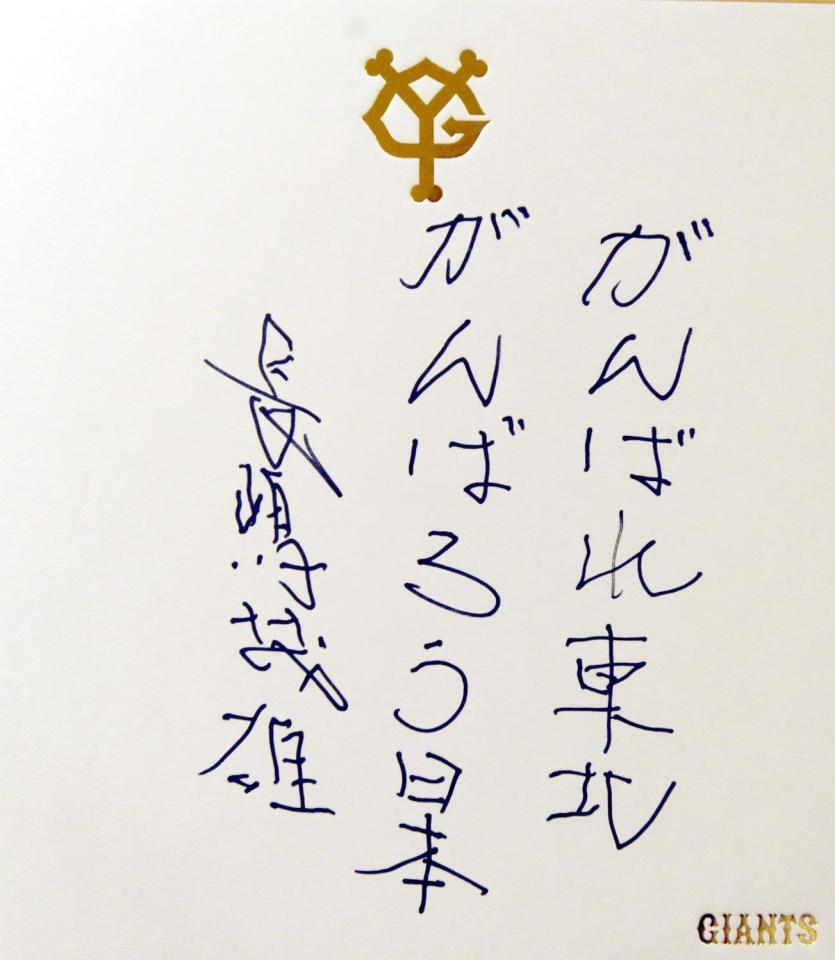 YG
がんばれ東北
がんばろう日本
GIANTS